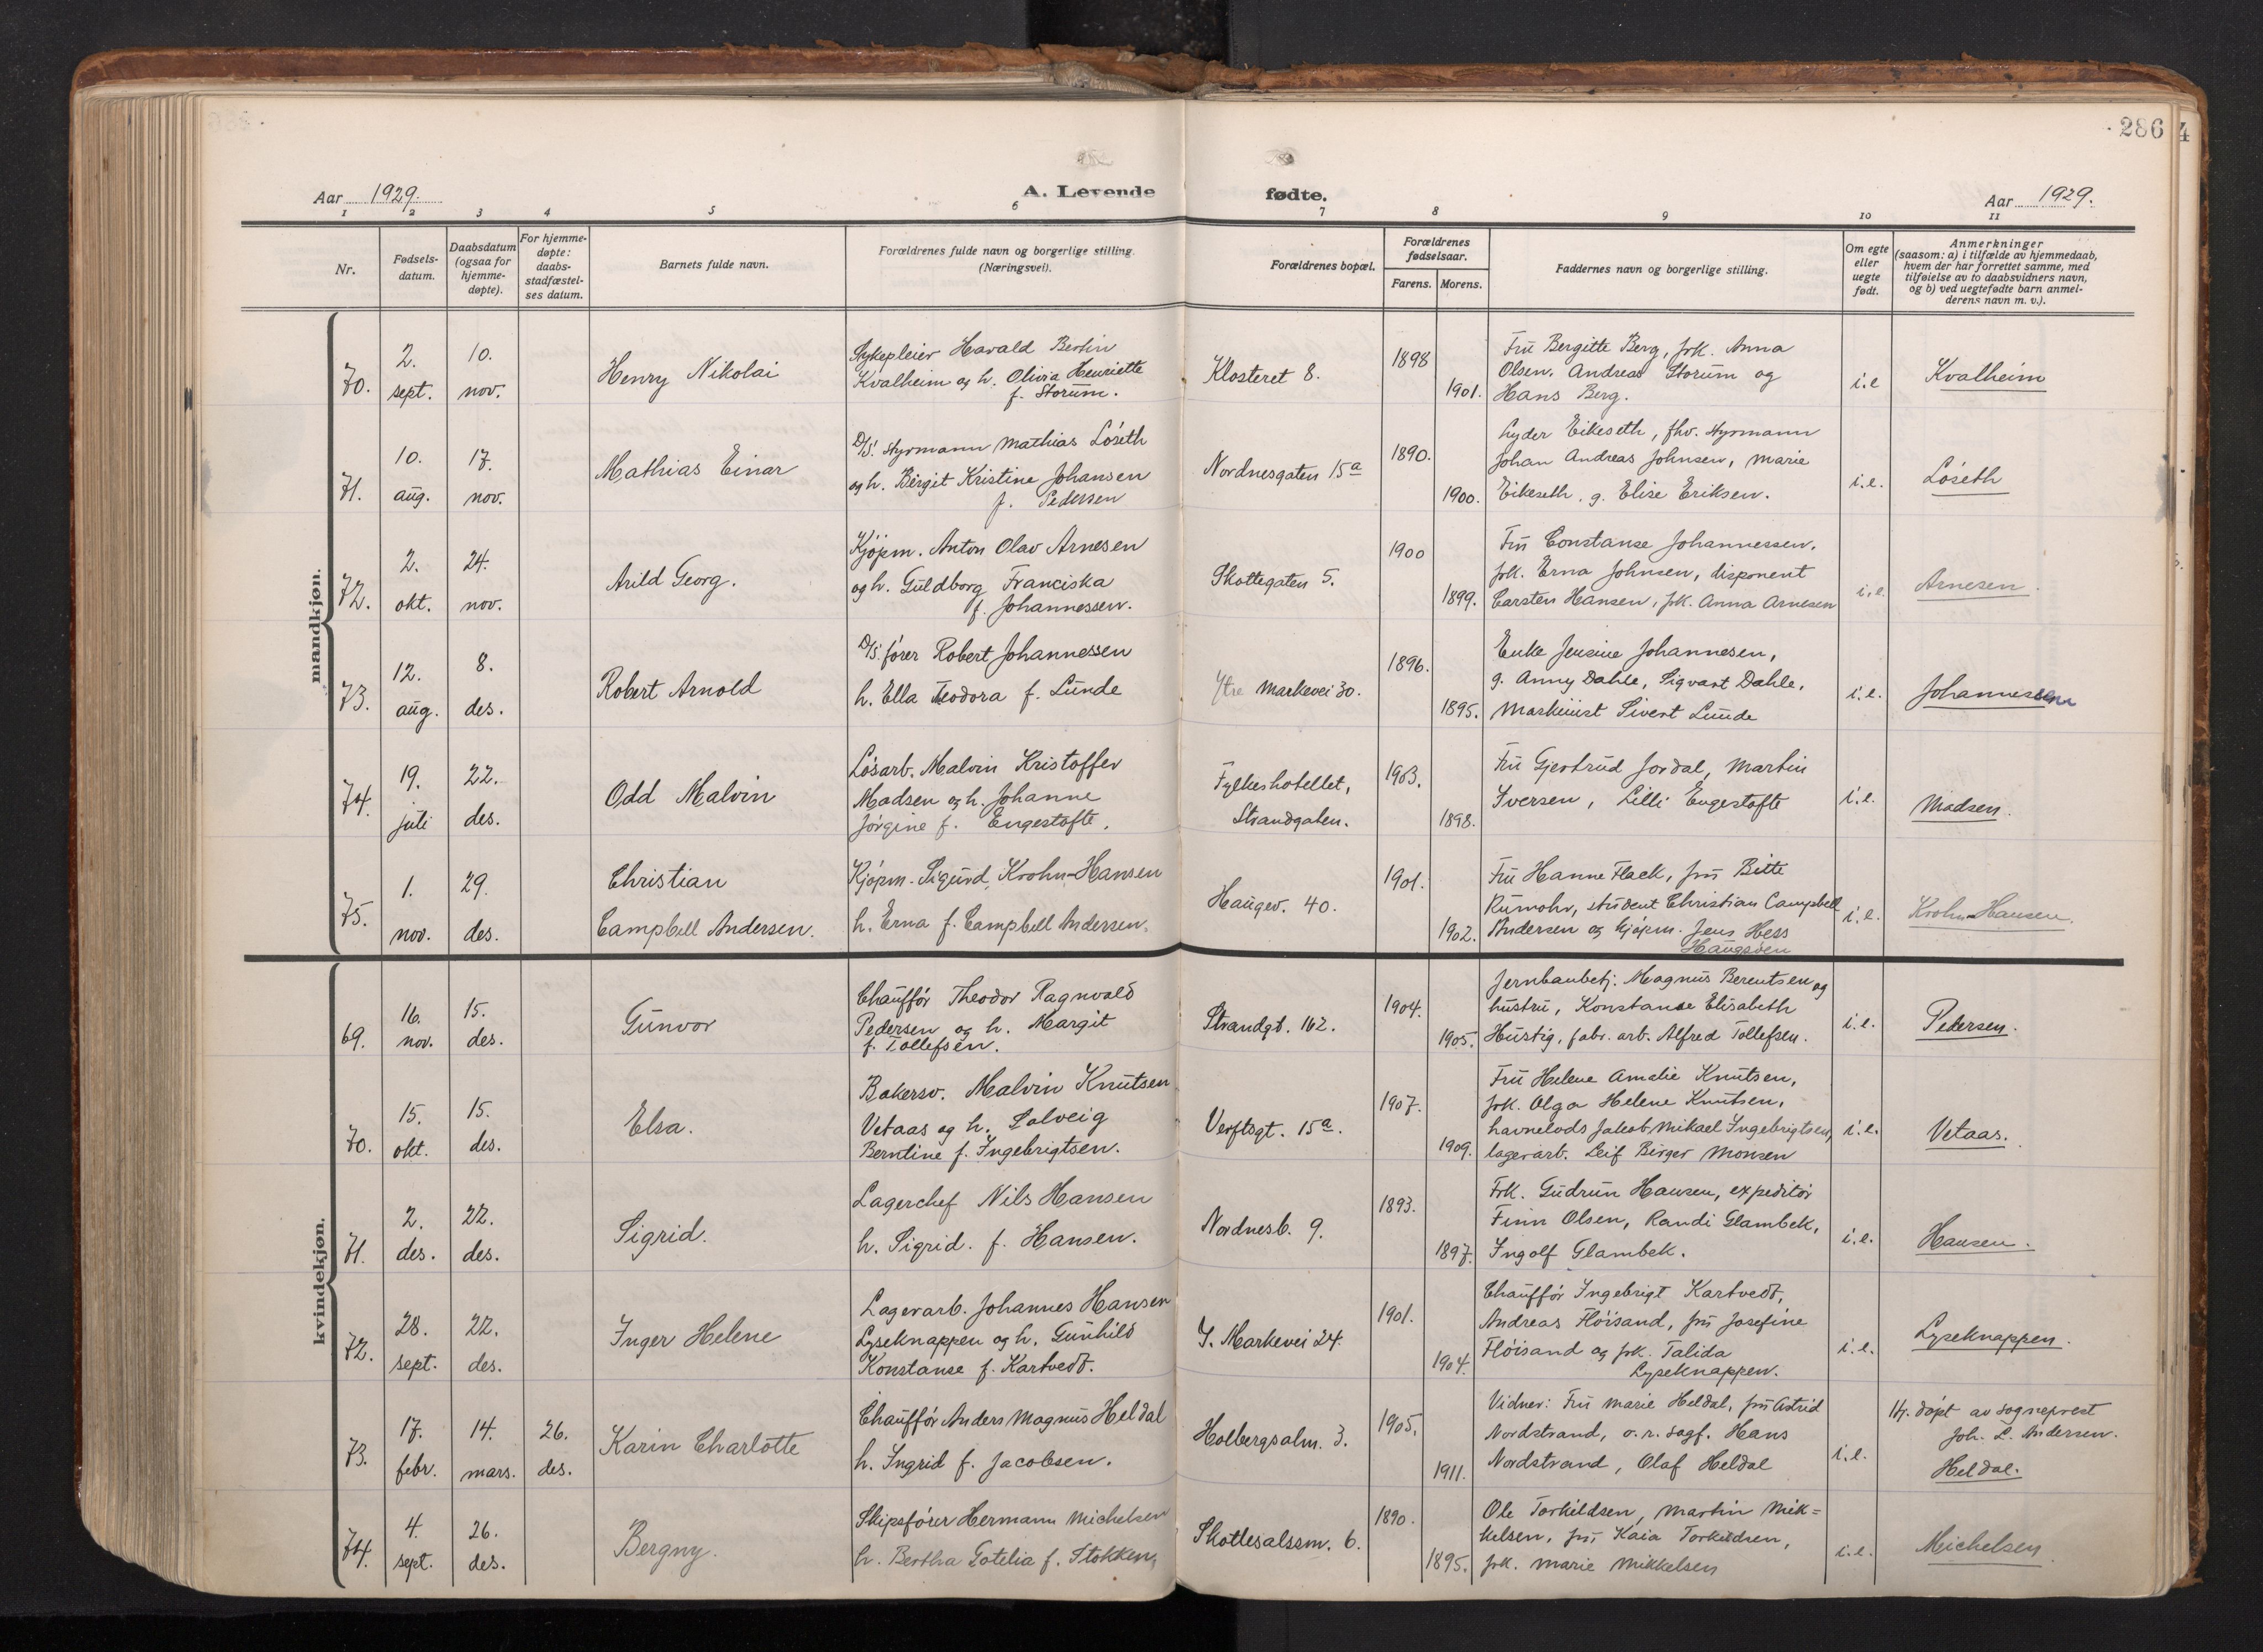 286
4
Aar 1929.
A. Levende fødte.
Aar 1929.
1 2 3 4 5 6 7 8 9 10 11
Nr.
Fødsels-
datum.
Daabsdatum
(ogsaa for
hjemme-
døpte).
For hjemme-
døpte:
daabs-
stadfæstel-
ses datum.
Barnets fulde navn.
Forældrenes fulde navn og borgerlige stilling.
(Næringsvei).
Forældrenes bopæl.
Forældrenes
fødselsaar.
Farens. Morens.
Faddernes navn og borgerlige stilling.
Om egte
eller
uegte
født.
Anmerkninger
(saasom: a) i tilfælde av hjemmedaab,
hvem der har forrettet samme, med
tilføielse av to daabsvidners navn,
og b) ved uegtefødte barn anmel-
derens navn m. v.).
mandkjøn.
70.
2.
sept.
10.
nov.
Henry Nikolai
Sykepleier Harald Bertin
Kvalheim og h. Olivia Henriette
f. Storum.
Klosteret 8.
1898
1901.
Fru Bergitte Berg, frk. Anna
Olsen. Andreas Storum og
Hans Berg.
i.e
Kvalheim
71.
10.
aug.
17.
nov.
Mathias Einar
D/S. styrmann Mathias Løseth
og h. Birgit Kristine Johansen
f. Pedersen
Nordnesgaten 15a
1890.
1900.
Lyder Eikeseth, fhv. styrmann
Johan Andreas Johnsen, Marie
Eikeseth, g. Elise Eriksen.
i.e.
Løseth
72.
2.
okt.
24.
nov.
Arild Georg.
Kjøpm. Anton Olav Arnesen
og h. Guldborg Franciska
f. Johannessen.
Skottegaten 5.
1900
1899.
Fru Constanse Johannessen,
frk. Erna Johnsen, disponent
Carsten Hansen, frk. Anna Arnesen
i.e.
Arnesen.
73.
12.
aug.
8.
des.
Robert Arnold
D/S. fører Robert Johannessen
h. Ella Teodora f. Lunde
Ytre Markevei 30.
1896.
1895.
Enke Jensine Johannesen,
g. Anny Dahle, Sigvart Dahle,
Maskinist Sivert Lunde
i.e.
Johannessen
74.
19.
juli
22.
des.
Odd Malvin
Løsarb. Malvin Kristoffer
Madsen og h. Johanne
Jørgine f. Engestofte.
Fylkeshotellet,
Strandgaten.
1903.
1898.
Fru Gjertrud Jordal, Martin
Iversen, Lilli Engestofte
i.e.
Madsen.
75.
1.
nov.
29.
des.
Christian
Campbell Andersen.
Kjøpm. Sigurd Krohn-Hansen
h. Erna f. Campbell Andersen.
Haugev. 40.
1901.
1902.
Fru Hanne Flack, fru Bitte
Rumohr, student Christian Campbell
Andersen og kjøpm. Jens Hess
Haugsøen
i.e.
Krohn-Hansen.
kvindekjøn.
69.
16.
nov.
15.
des.
Gunvor
Chauffør Theodor Ragnvald
Pedersen og h. Margit
f. Tollefsen.
Strandgt. 162.
1904.
1905.
Jernbanbetj. Magnus Berentsen og
hustru, Konstanse Elisabeth
Hustig, fabr. arb. Alfred Tollefsen.
i.e.
Pedersen.
70.
15.
okt.
15.
des.
Elsa.
Bakersv. Malvin Knutsen
Vetaas og h. Solveig
Berntine f. Ingebrigtsen.
Verftsgt. 15a.
1907.
1909.
Fru Helene Amalie Knutsen,
frk. Olga Helene Knutsen,
havnelods Jakob Mikael Ingebrigtsen,
lagerarb. Leif Birger Monsen
i.e.
Vetaas.
71.
2.
des.
22.
des.
Sigrid.
Lagerchef Nils Hansen
h. Sigrid. f. Hansen.
Nordnesb. 9.
1893.
1897.
Frk. Gudrun Hansen, expeditør
Finn Olsen, Randi Glambek,
Ingolf Glambek.
i.e.
Hansen.
72.
28.
sept.
22.
des.
Inger Helene
Lagerarb. Johannes Hansen
Lyseknappen og h. Gunhild
Konstanse f. Kartvedt.
Y. Markevei 24.
1901.
1904.
Chauffør Ingebrigt Kartvedt,
Andreas Fløisand, fru Josefine
Fløisand og frk. Talida
Lyseknappen.
i.e.
Lyseknappen.
73.
17.
febr.
14.
mars.
26.
des.
Karin Charlotte
Chauffør Anders Magnus Heldal
h. Ingrid f. Jacobsen.
Holbergsalm. 3.
1905.
1911.
Vidner: Fru Marie Heldal, fru Astrid
Nordstrand, o.r. sagf. Hans
Nordstrand, Olaf Heldal
i.e.
Hj. døpt av sogneprest
Joh. L. Andersen.
Heldal.
74.
4.
sept.
26.
des.
Bergny.
Skipsfører Hermann Michelsen
h. Bertha Gotelia f. Stokken,
Skottesalssm. 6.
1890.
1895.
Ole Torkildsen, Martin Mik=
kelsen, fru Kaia Torkildsen,
frk. Marie Mikkelsen
i.e.
Michelsen.